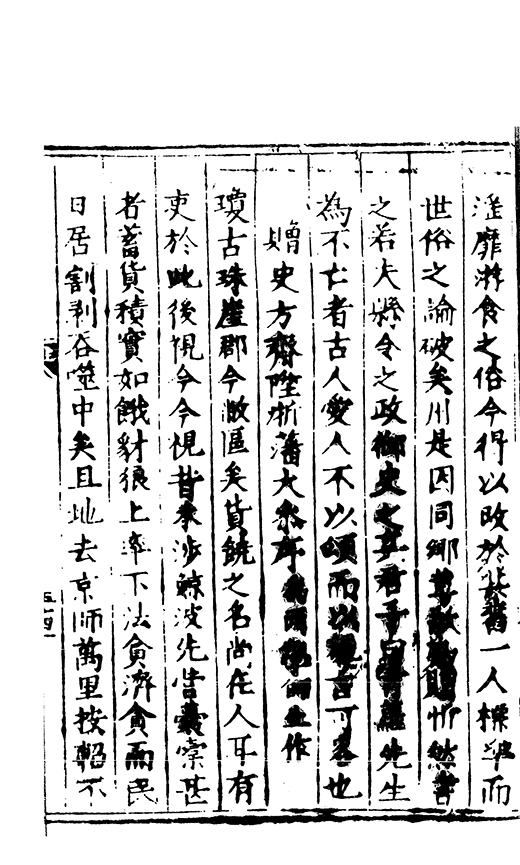 淫靡游食之俗今得以改於其舊一人標準而
世俗之論破矣川是因同鄉慨然書
之若夫縣令之政御史之君子曰先生
為不亡者古人愛人不以頌而以言可否也
贈史方齋陞浙藩大參序師生作
瓊古珠崖郡今敝區矣貨饒之名尚在人耳有
吏於此後視今今視昔來涉鯨波先營囊槖甚
者蓄貨積寶如餓豺狼上率下法貪濟貪而民
日居割剥吞噬中矣且地去京師萬里按軺不